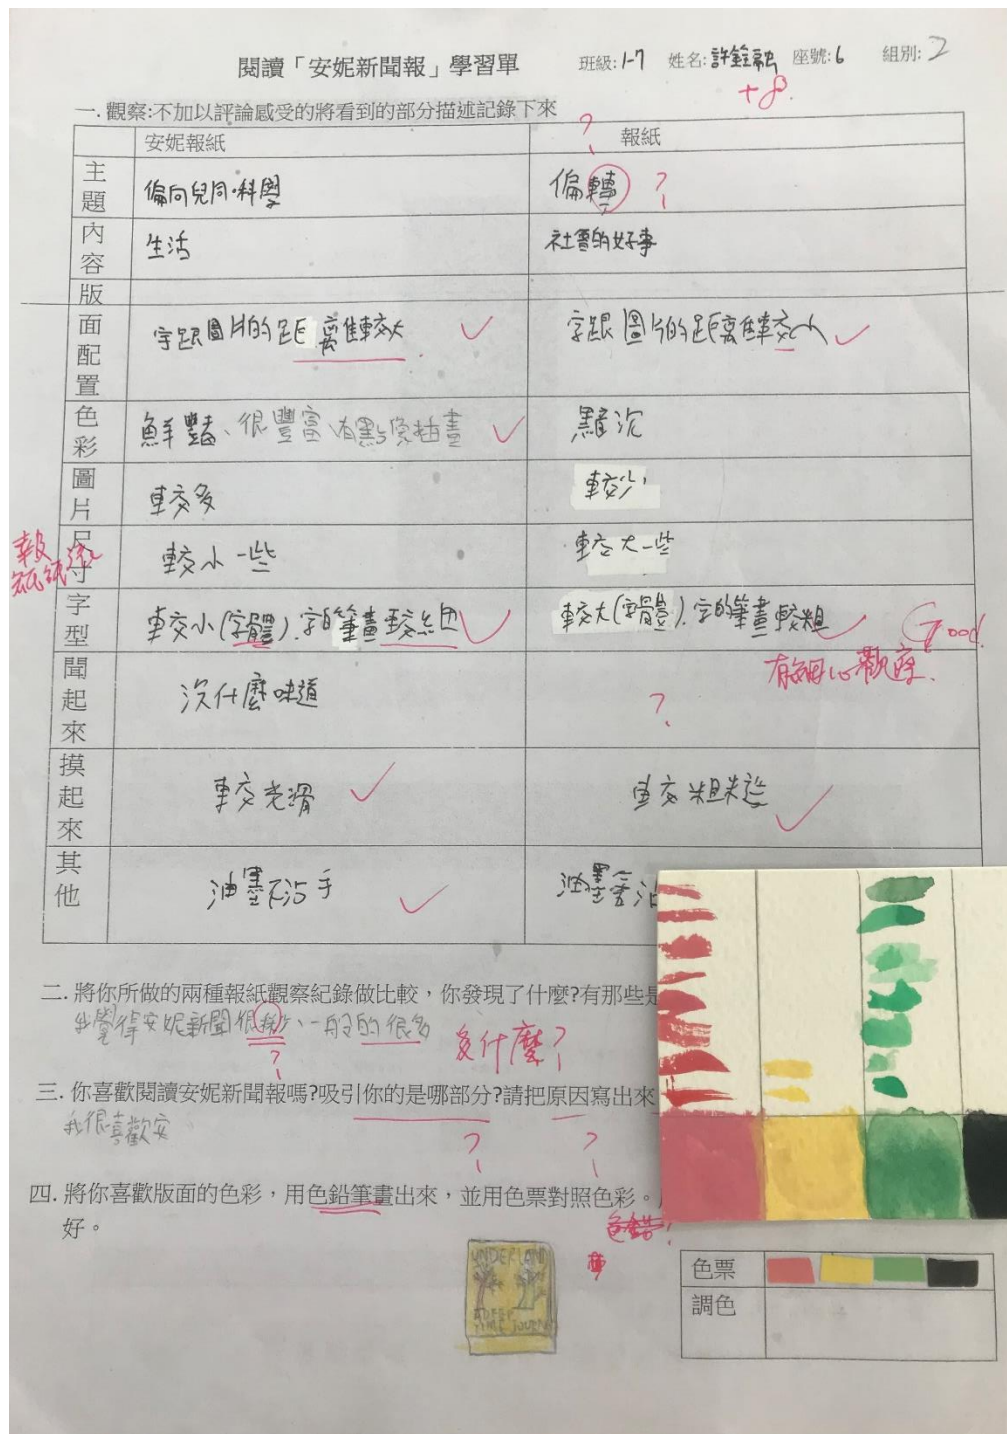 閱讀「安妮新聞報」學習單 班級:1-7 姓名:許銓 座號:6 組別:2
+8.
一.觀察:不加以評論感受的將看到的部分描述記錄下來
安妮報紙 報紙 ?
主題 偏向兒同.科學 偏轉 ?
內容 生活 社會的好事
版面配置 字跟圖片的距離較大 字跟圖片的距離較小
色彩 鮮豔、很豐富、有點像插畫 黯沉
圖片 較多 較少
報紙
尺寸 較小一些 較大一些
字型 較小(字體).字的筆畫較細 較大(字體).字的筆畫較粗
Good.
有細心觀察.
聞起來 沒什麼味道 ?
摸起來 較光滑 較粗糙
其他 油墨不沾手 油墨會沾
二. 將你所做的兩種報紙觀察紀錄做比較，你發現了什麼?有那些是
我覺得安妮新聞很 、一般的很多 多什麼?
?
三. 你喜歡閱讀安妮新聞報嗎?吸引你的是哪部分?請把原因寫出來
我很喜歡安
? ?
四. 將你喜歡版面的色彩，用色鉛筆畫出來，並用色票對照色彩。
好。
UNDERLAND
A DEEP
TIME JOURN
色票
調色